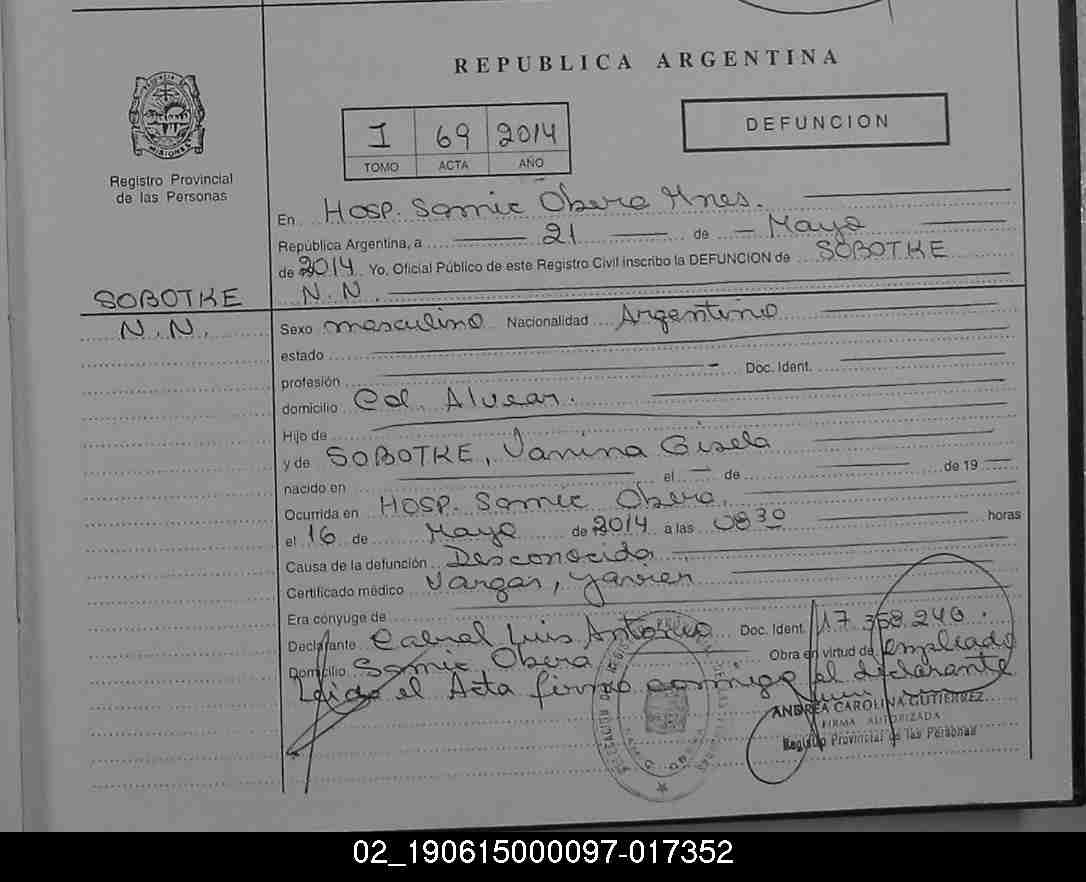 REPUBLICA ARGENTINA
MISIONES
Registro Provincial
de las Personas
I 69 2014
TOMO ACTA AÑO
DEFUNCION
En Hosp. Samic Obera Mnes.
República Argentina, a 21 de Mayo
de 2014 Yo, Oficial Público de este Registro Civil inscribo la DEFUNCION de SOBOTKE
N.N.
SOBOTKE
N.N.
Sexo masculino Nacionalidad Argentino
estado
profesión Doc. Ident.
domicilio Col. Alvear.
Hijo de
y de SOBOTKE, Vanina Gisela
nacido en el de de 19
Ocurrida en Hosp. Samic Obera,
el 16 de Mayo de 2014 a las 0830 horas
Causa de la defunción Desconocida
Certificado médico Vargas, Javier
Era cónyuge de
Declarante Cabral Luis Antonio Doc. Ident. 17.358.240.
Domicilio Samic, Obera Obra en virtud de empleado
Leida el Acta firma conmigo el declarante
ANDREA CAROLINA GUTIERREZ
FIRMA AUTORIZADA
Registro Provincial de las Personas
02_190615000097-017352